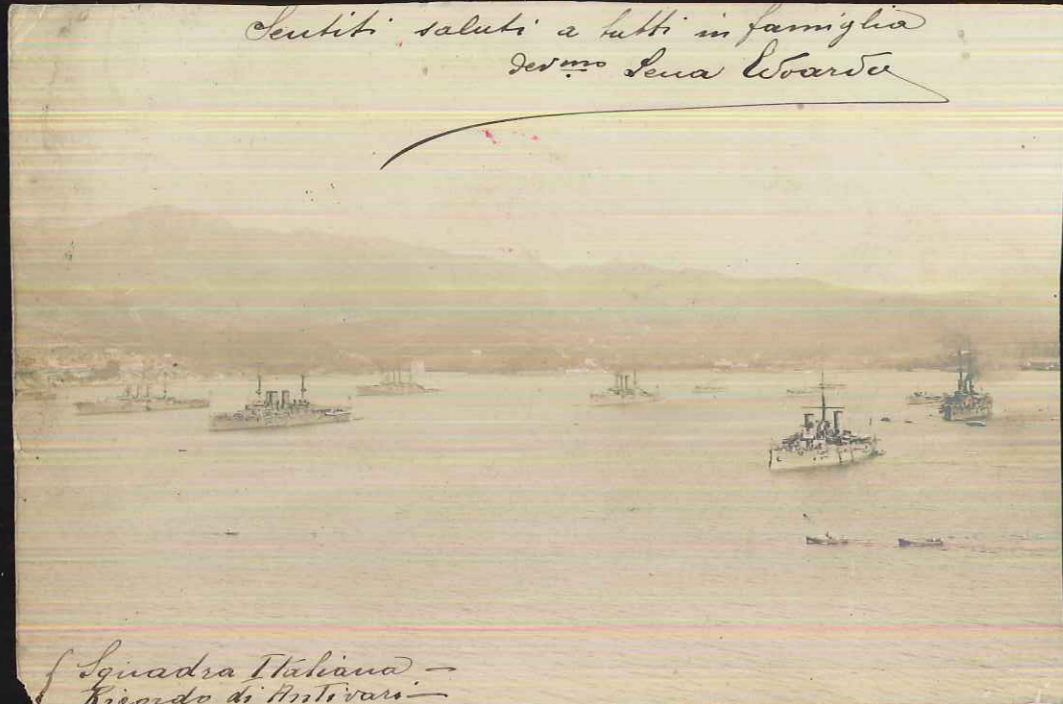 Sentiti saluti a tutti in famiglia
dev.mo Sena Edoardo
{ Squadra Italiana —
Ricordo di Antivari —